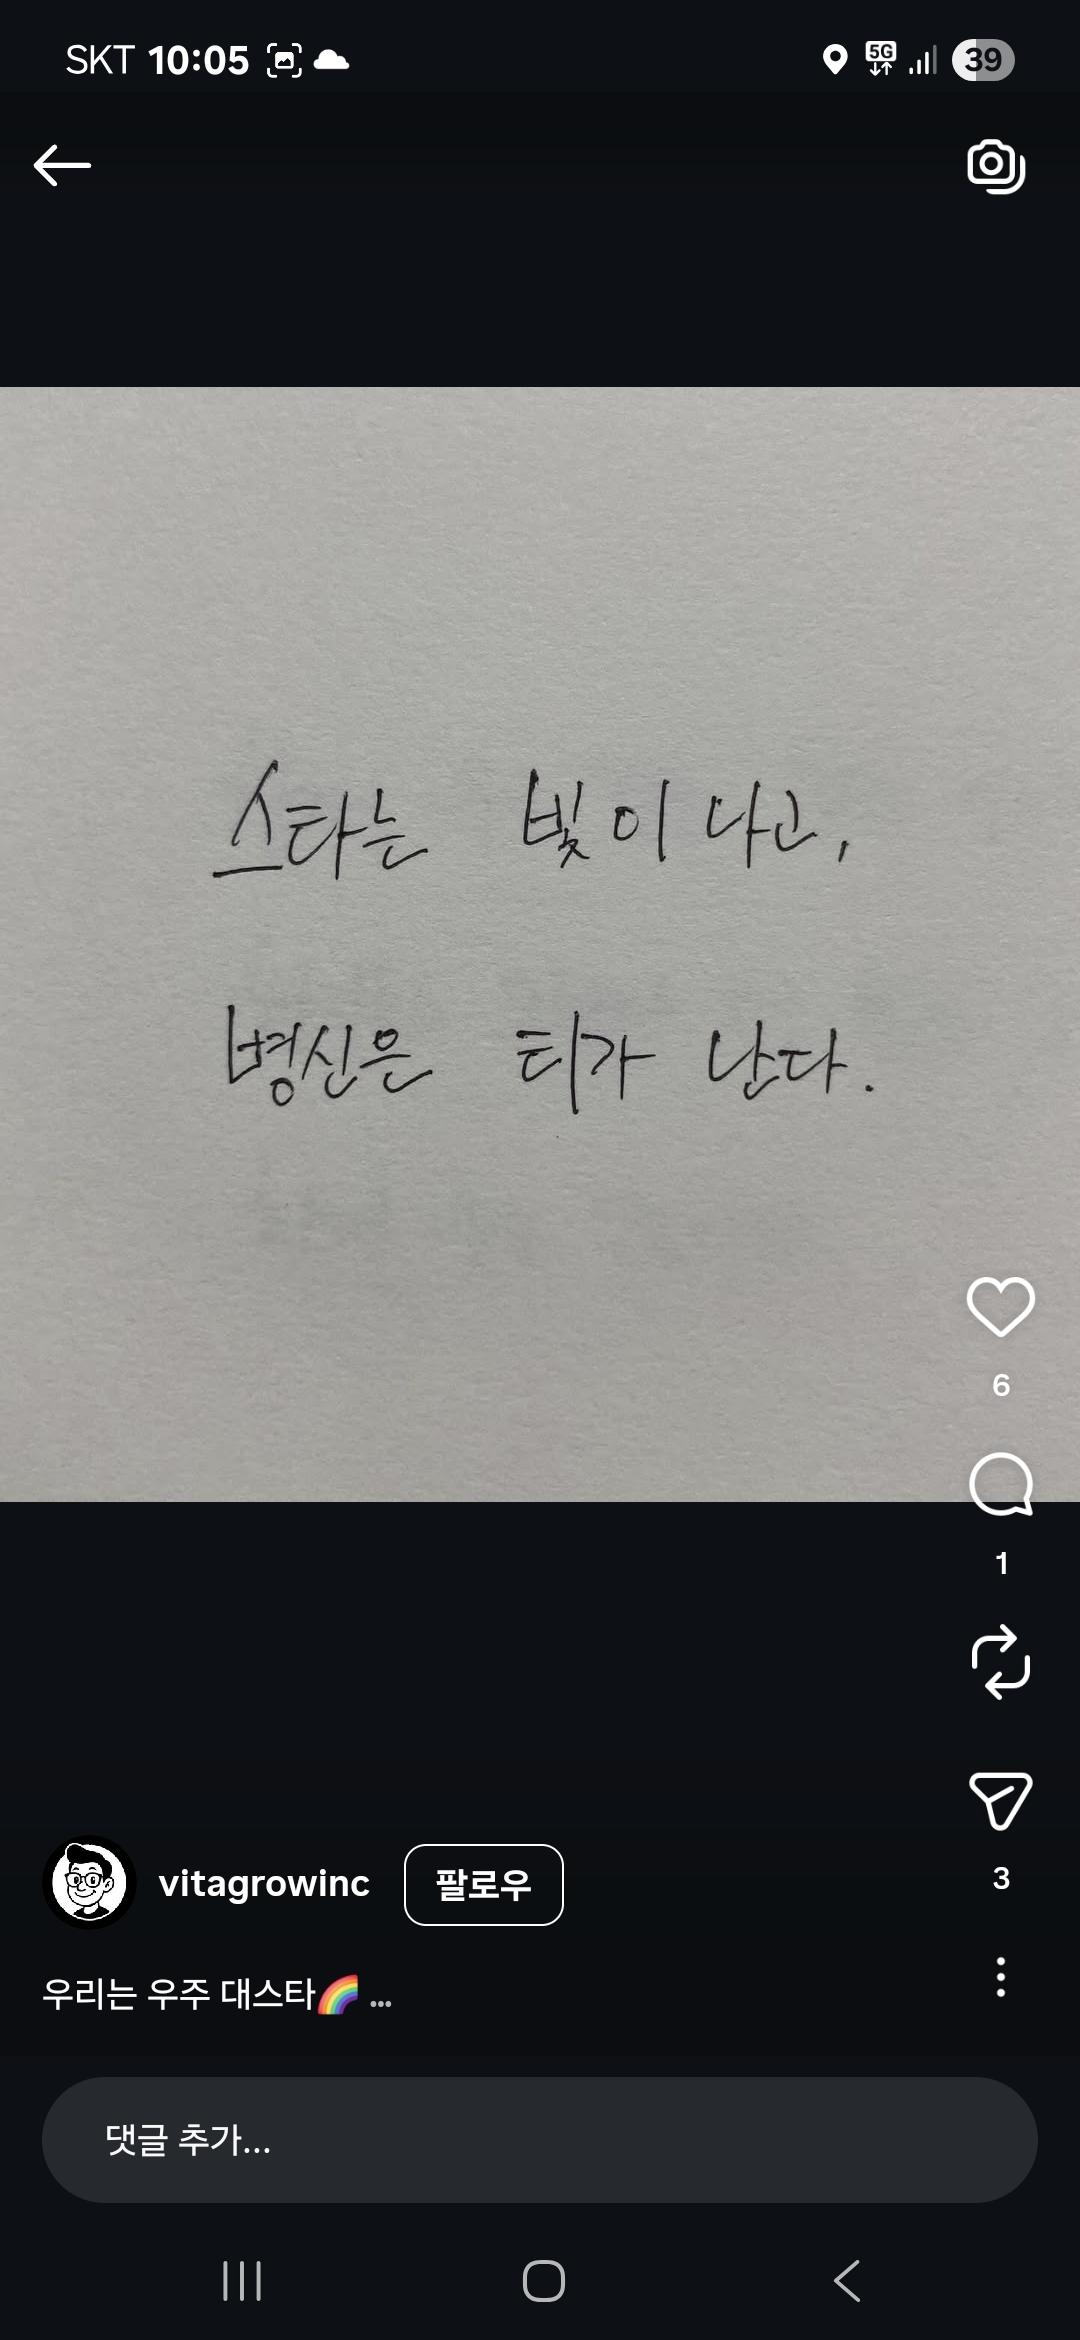 SKT 10:05 5G 39
스타는 빛이 나고,
병신은 티가 난다.
6
1
3
vitagrowinc 팔로우
우리는 우주 대스타🌈 ...
댓글 추가...